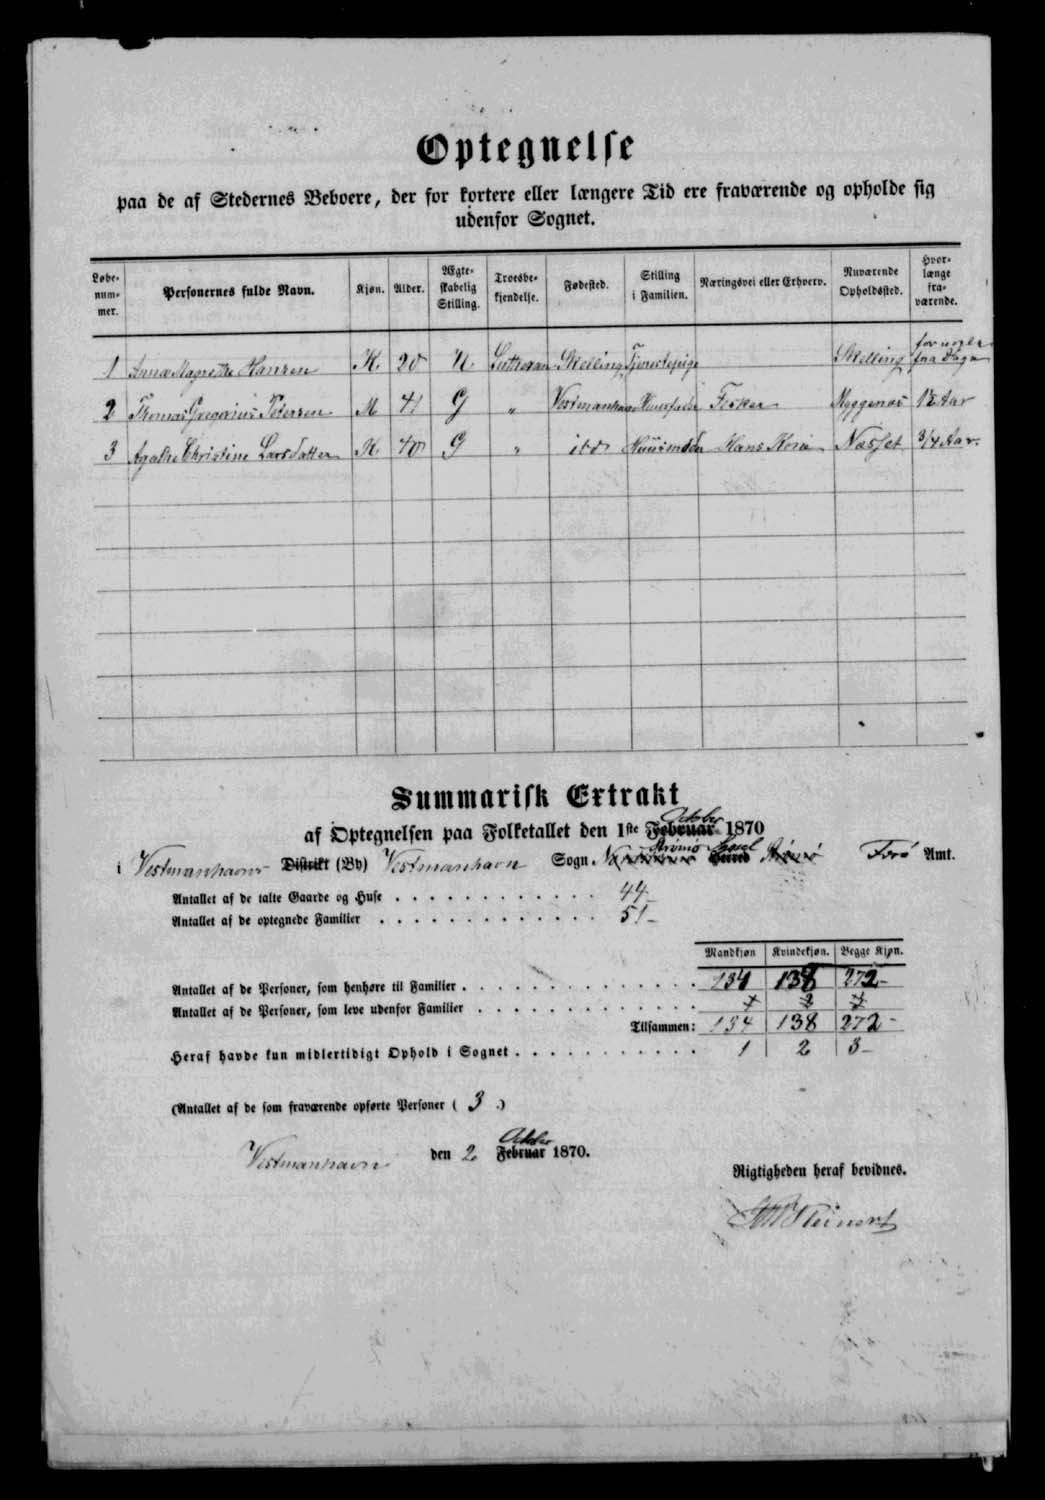 Optegnelse
paa de af Stedernes Beboere, der for kortere eller længere Tid ere fraværende og opholde sig
udenfor Sognet.
Løbe-nummer. Personernes fulde Navn. Kjøn. Alder. Ægteskabelig Stilling. Troesbekjendelse. Fødested. Stilling i Familien. Næringsvei eller Erhverv. Nuværende Opholdssted. Hvorlænge fraværende.
1 Anna Magrethe Hansen K 20 U Luthersan Skelling Tjenestepige Skelling for nogle faa Dage
2 Thomas Gregorius Petersen M 41 G " Vestmanhavn Huusfader Fisker Myggenæs 12 Aar
3 Agathe Christine Larsdatter K 40 G " ibd Hans Kone Næsset 3/4 Aar.
Summarisk Extrakt
af Optegnelsen paa Folketallet den 1ste Februar October 1870
i Vestmanhavns Distrikt (By) Vestmanhavn Sogn Strømø Syssel Herred Strømø Færø Amt.
Antallet af de talte Gaarde og Huse 44
Antallet af de optegnede Familier 51
Mandkjøn Kvindekjøn. Begge Kjøn.
Antallet af de Personer, som henhøre til Familier 134 138 272
Antallet af de Personer, som leve udenfor Familier
Tilsammen: 134 138 272
Heraf havde kun midlertidigt Ophold i Sognet 1 2 3
(Antallet af de som fraværende opførte Personer ( 3 .)
Vestmanhavn den 2 Februar October 1870.
Rigtigheden heraf bevidnes.
Steinert